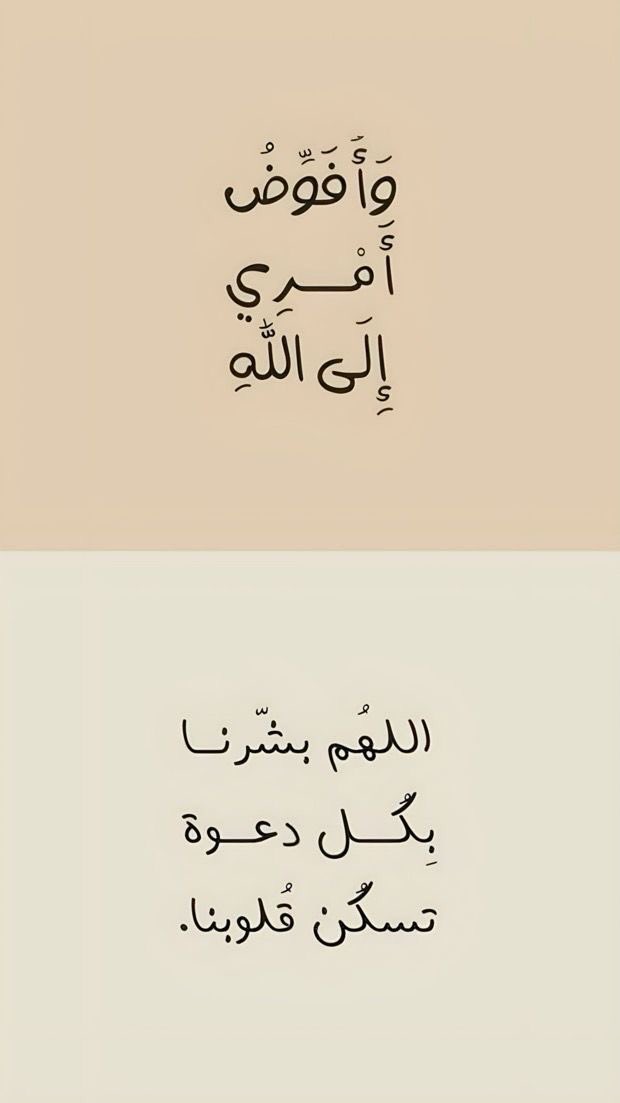 وَأَفَوِّضُ
أَمْـــرِي
إِلَى اللَّهِ
اللهُم بشّرنــا
بِكُـــل دعــوة
تسكُن قُلوبنا.